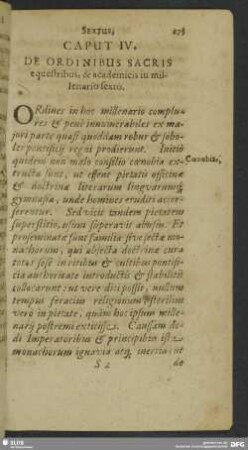 SEXTUS. 275
CAPUT IV.
DE ORDINIBUS SACRIS
equestribus, & academicis in mil-
lenario sexto.
ORdines in hoc millenario complu-
res & pené innumerabiles ex ma-
jori parte quasi quoddam robur & sobo-
les pontificij regni prodierunt. Initio
quidem non malo consilio cœnobia ex-
Cœnobia.
tructa sunt, ut essent pietatis officinæ
& doctrinæ literarum linguarumq́;
gymnasia, unde homines eruditi acces-
serentur. Sed vicit tandem pietatem
superstitio, usum superavit abusus. Et
proseminatæ sunt familiæ seu sectæ mo-
nachorum, qui abjecta doctrinæ cura
totos sese in ritibus & cultibus pontifi-
cia authoritate introductis & stabilitis
collocarunt: ut vere dici possit, nullum
tempus feracius religionum sterilius
vero in pietate, quàm hoc ipsum mille-
narij postremi extitisse. Causam de-
di Imperatoribus & principibus ista
monachorum ignavia atq́; inertia: ut
S 2 de
SLUB